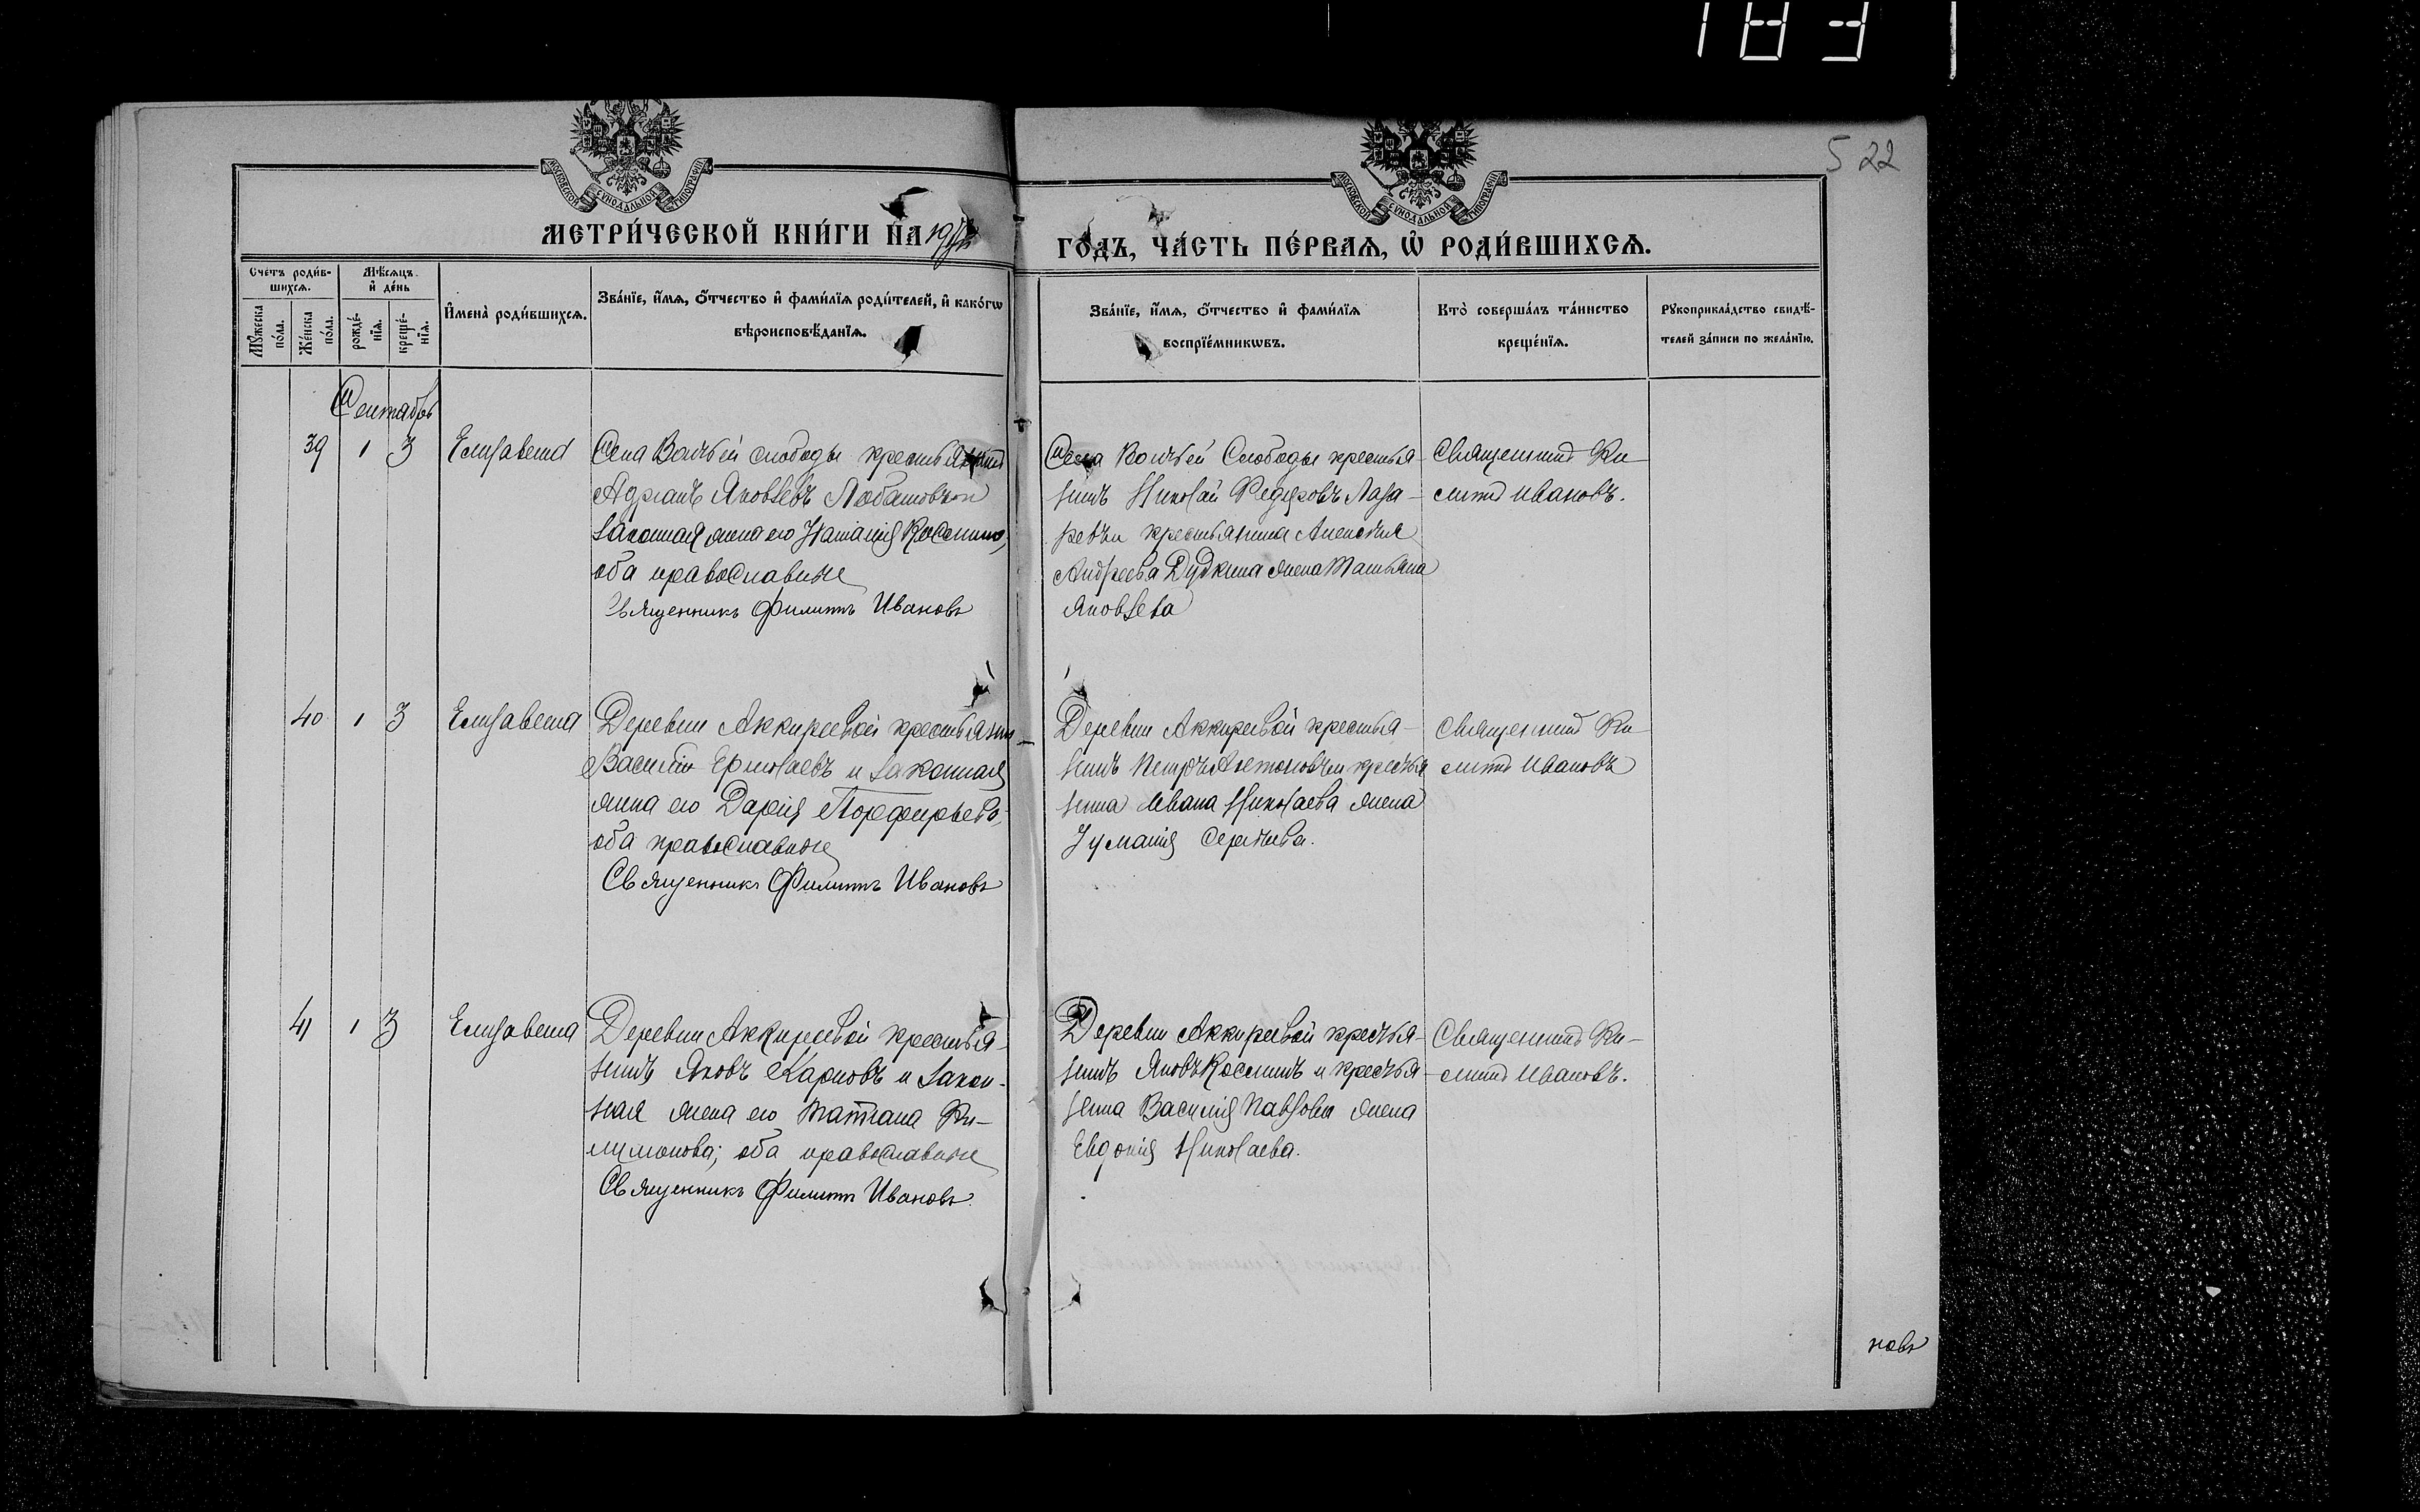 183
5 22
МОСКОВСКОЙ СѴНОДАЛЬНОЙ ТИПОГРАФІИ
МЕТРИ́ЧЕСКОЙ КНИ́ГИ НА 19
МОСКОВСКОЙ СѴНОДАЛЬНОЙ ТИПОГРАФІИ
ГО́ДЪ, ЧА́СТЬ ПЕ́РВАѦ, Ѡ҆ РОДИ́ВШИХСѦ.
Сче́тъ роди́в-
шихсѧ.
Мꙋ́жеска по́ла.
Же́нска по́ла.
Мѣ́сѧцъ
и҆ де́нь
рожде́-
нїѧ.
креще́-
нїѧ.
И҆мена̀ роди́вшихсѧ.
Зва́нїе, и҆́мѧ, ѻ҆́тчество и҆ фами́лїѧ роди́телей, и҆ како́гѡ
вѣроисповѣ́данїѧ.
Зва́нїе, и҆́мѧ, ѻ҆́тчество и҆ фами́лїѧ
воспрїе́мникѡвъ.
Кто̀ соверша́лъ та́инство
креще́нїѧ.
Рꙋкоприкла́дство свидѣ́-
телей за́писи по жела́нїю.
Сентябрь
39 1 3 Елизавета
Села Волчьей слободы крестьянинъ
Адріанъ Яковлевъ Лобановъ и
законная жена его Наталія Космина,
оба православные
Священникъ Филиппъ Ивановъ
Села Волчьей Слободы крестья-
нинъ Николай Федоровъ Лаза-
ревъ и крестьянина Алексѣя
Андреева Дудкина жена Татьяна
Яковлева
Священникъ Фи-
липпъ Ивановъ.
40 1 3 Елизавета
Деревни Аккиреевой крестьянинъ
Василій Ермолаевъ и законная
жена его Дарія Порфирьева,
оба православные
Священникъ Филиппъ Ивановъ
Деревни Аккиреевой крестья-
нинъ Петръ и крестья
нина Ивана Николаева жена
Сергѣева.
Священникъ Фи-
липпъ Ивановъ
41 1 3 Елизавета
Деревни Аккиреевой крестья-
нинъ Яковъ Карповъ и закон-
ная жена его Татіана Фи-
лимонова; оба православные
Священникъ Филиппъ Ивановъ.
Деревни Аккиреевой крестья-
нинъ Яковъ Косминъ и крестья-
нина Василія Павлова жена
Евдокія Николаева.
Священникъ Фи-
липпъ Ивановъ.
новъ